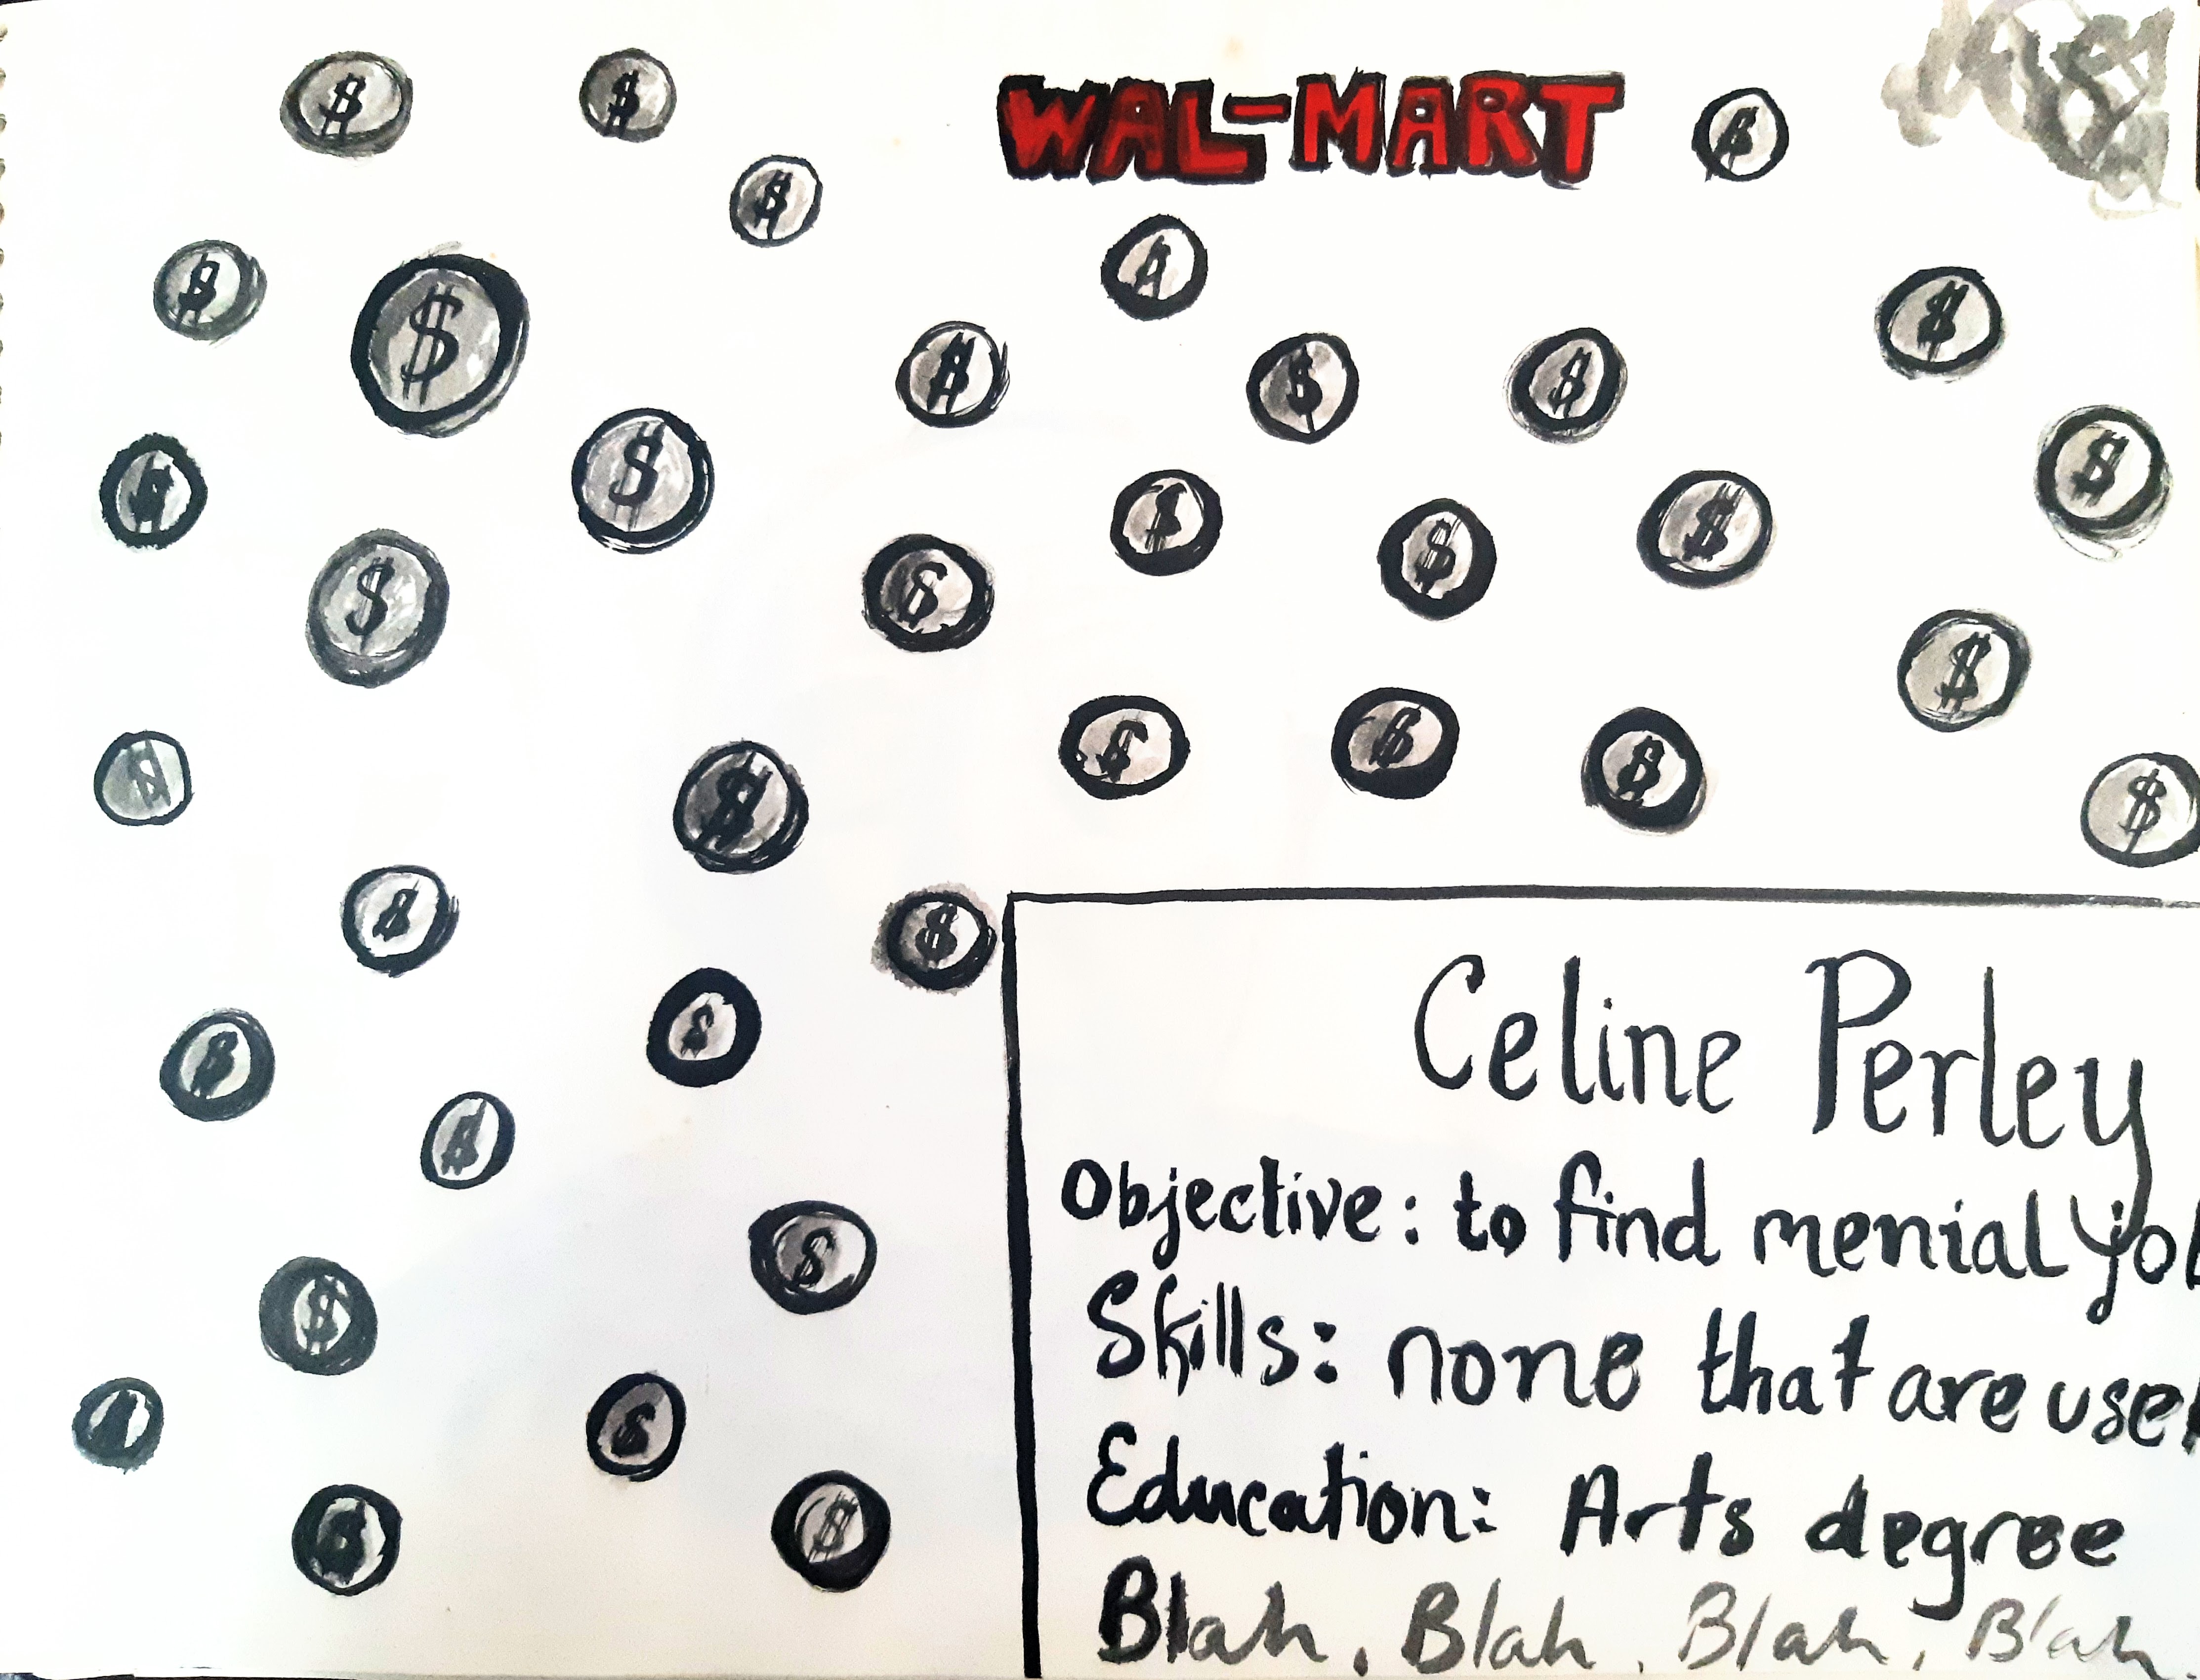 WAL-MART
Celine Perley
Objective: to find menial job
Skills: none that are usef
Education: Arts degree
Blah, Blah, Blah, Blah